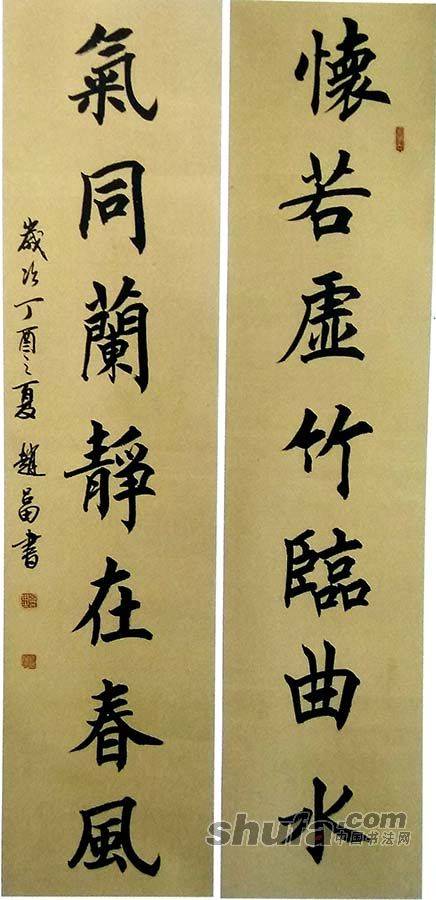 懷若虛竹臨曲水
氣同蘭靜在春風
歲次丁酉之夏 趙富書
shufa.com
中国书法网